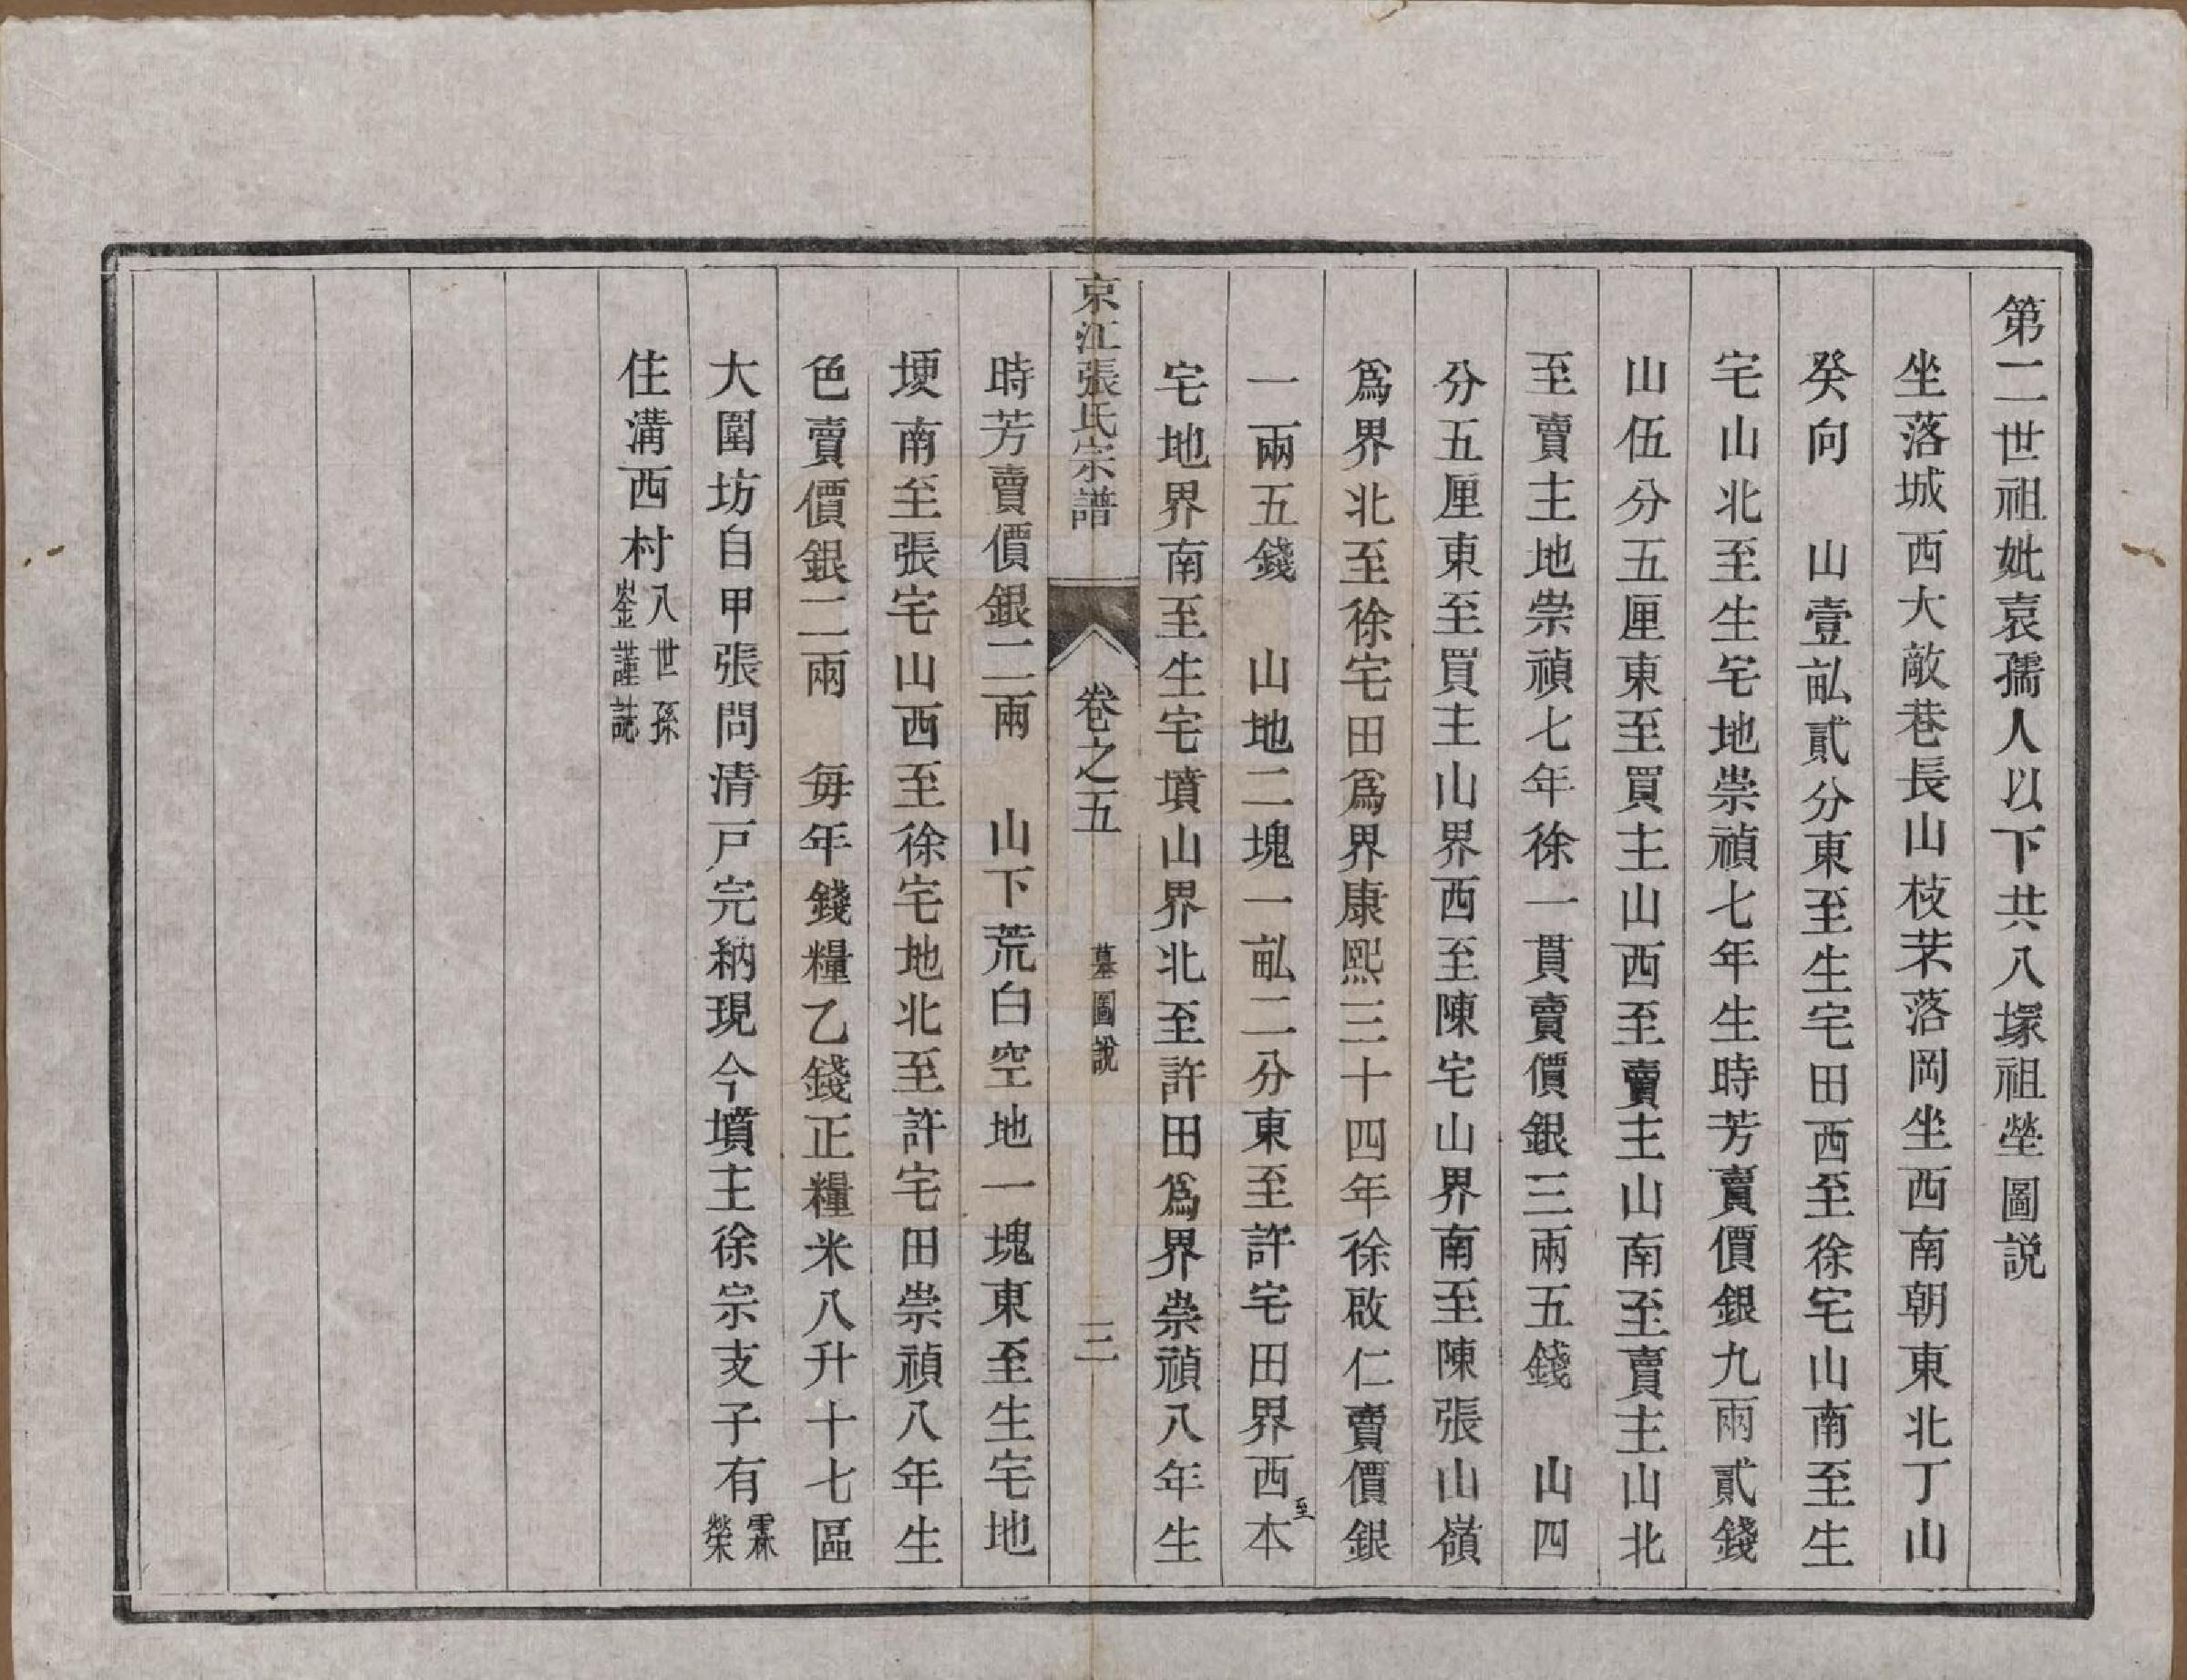 第二世祖妣袁孺人以下共八塚祖塋圖説
坐落城西大敵巷長山枝茮落岡坐西南朝東北丁山
癸向　山壹畆貳分東至生宅田西至徐宅山南至生
宅山北至生宅地崇禎七年生時芳賣價銀九兩貳錢
山伍分五厘東至買主山西至賣主山南至賣主山北
至賣主地崇禎七年徐一貫賣價銀三兩五錢　山四
分五厘東至買主山界西至陳宅山界南至陳張山嶺
爲界北至徐宅田爲界康熙三十四年徐啟仁賣價銀
一兩五錢　山地二塊一畆二分東至許宅田界西至本
宅地界南至生宅墳山界北至許田爲界崇禎八年生
京江張氏宗譜　卷之五　墓圖說　三
時芳賣價銀二兩　山下荒白空地一塊東至生宅地
埂南至張宅山西至徐宅地北至許宅田崇禎八年生
色賣價銀二兩　每年錢糧乙錢正糧米八升十七區
大圍坊自甲張問清戸完納現今墳主徐宗支子有霖榮
住溝西村八世孫崟謹誌